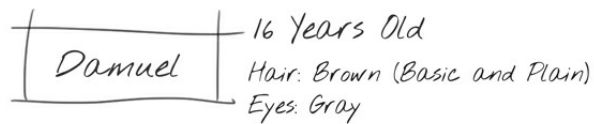 Damuel
16 Years Old
Hair: Brown (Basic and Plain)
Eyes: Gray